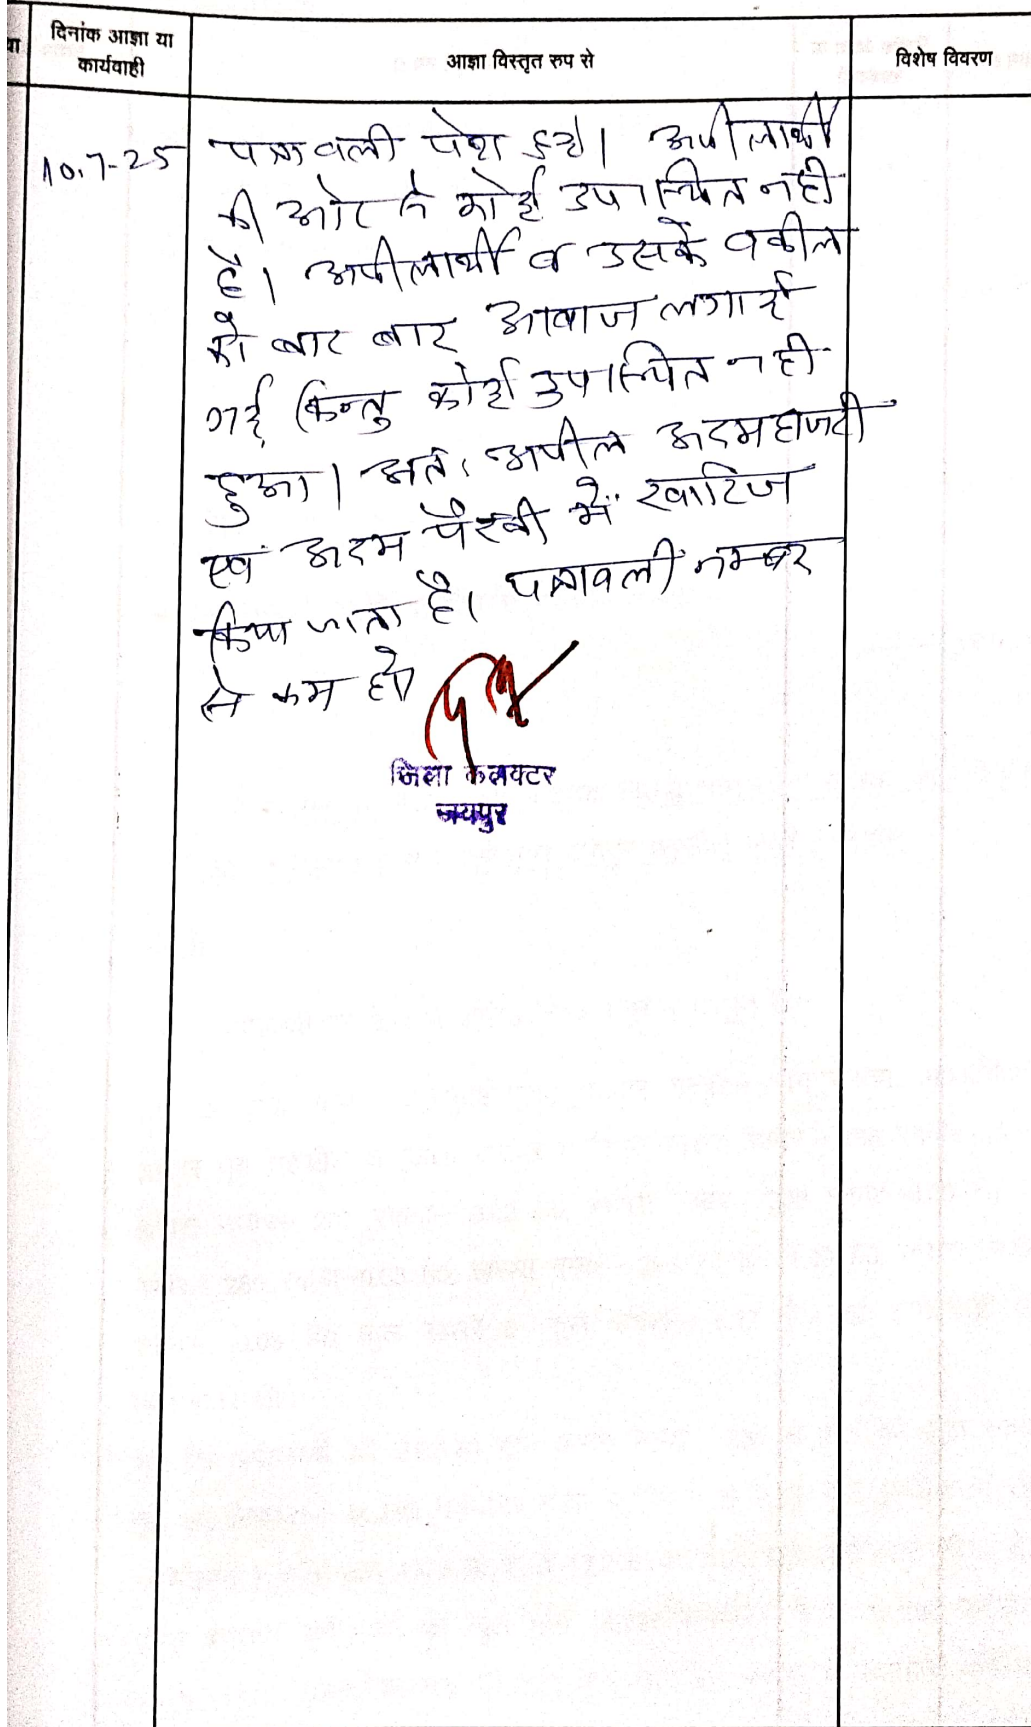 दिनांक आज्ञा या
कार्यवाही
आज्ञा विस्तृत रुप से
विशेष विवरण
10.7-25
पत्रावली पेश हुई। अपीलार्थी
की ओर से कोई उपस्थित नही
है। अपीलार्थी व उसके वकील
को बार बार आवाज लगाई
गई किन्तु कोई उपस्थित नही
हुआ। अतः अपील अदमहाजरी
एवं अदम पैरवी में खारिज
किया जाता है। पत्रावली नम्बर
से कम हो।
जिला कलक्टर
जयपुर